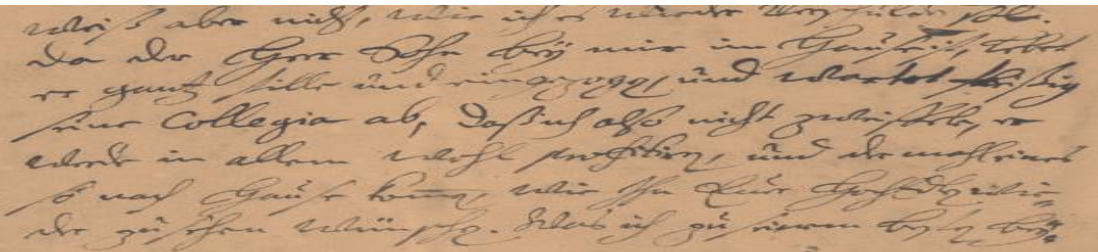 weiß aber nicht, wie ich es wieder verschulden soll.
da der Herr Sohn bey mir im Hause ist, lebet
er gantz stille und eingezogen, und wartet fleißig
seine Collegia ab, daß ich also nicht zweiffele, er
werde in allem wohl profitiren, und dermahleines
so nach Hause kommen, wie Ihn Eure
der zu sehen wünschen. Was ich zu seinem besten bey